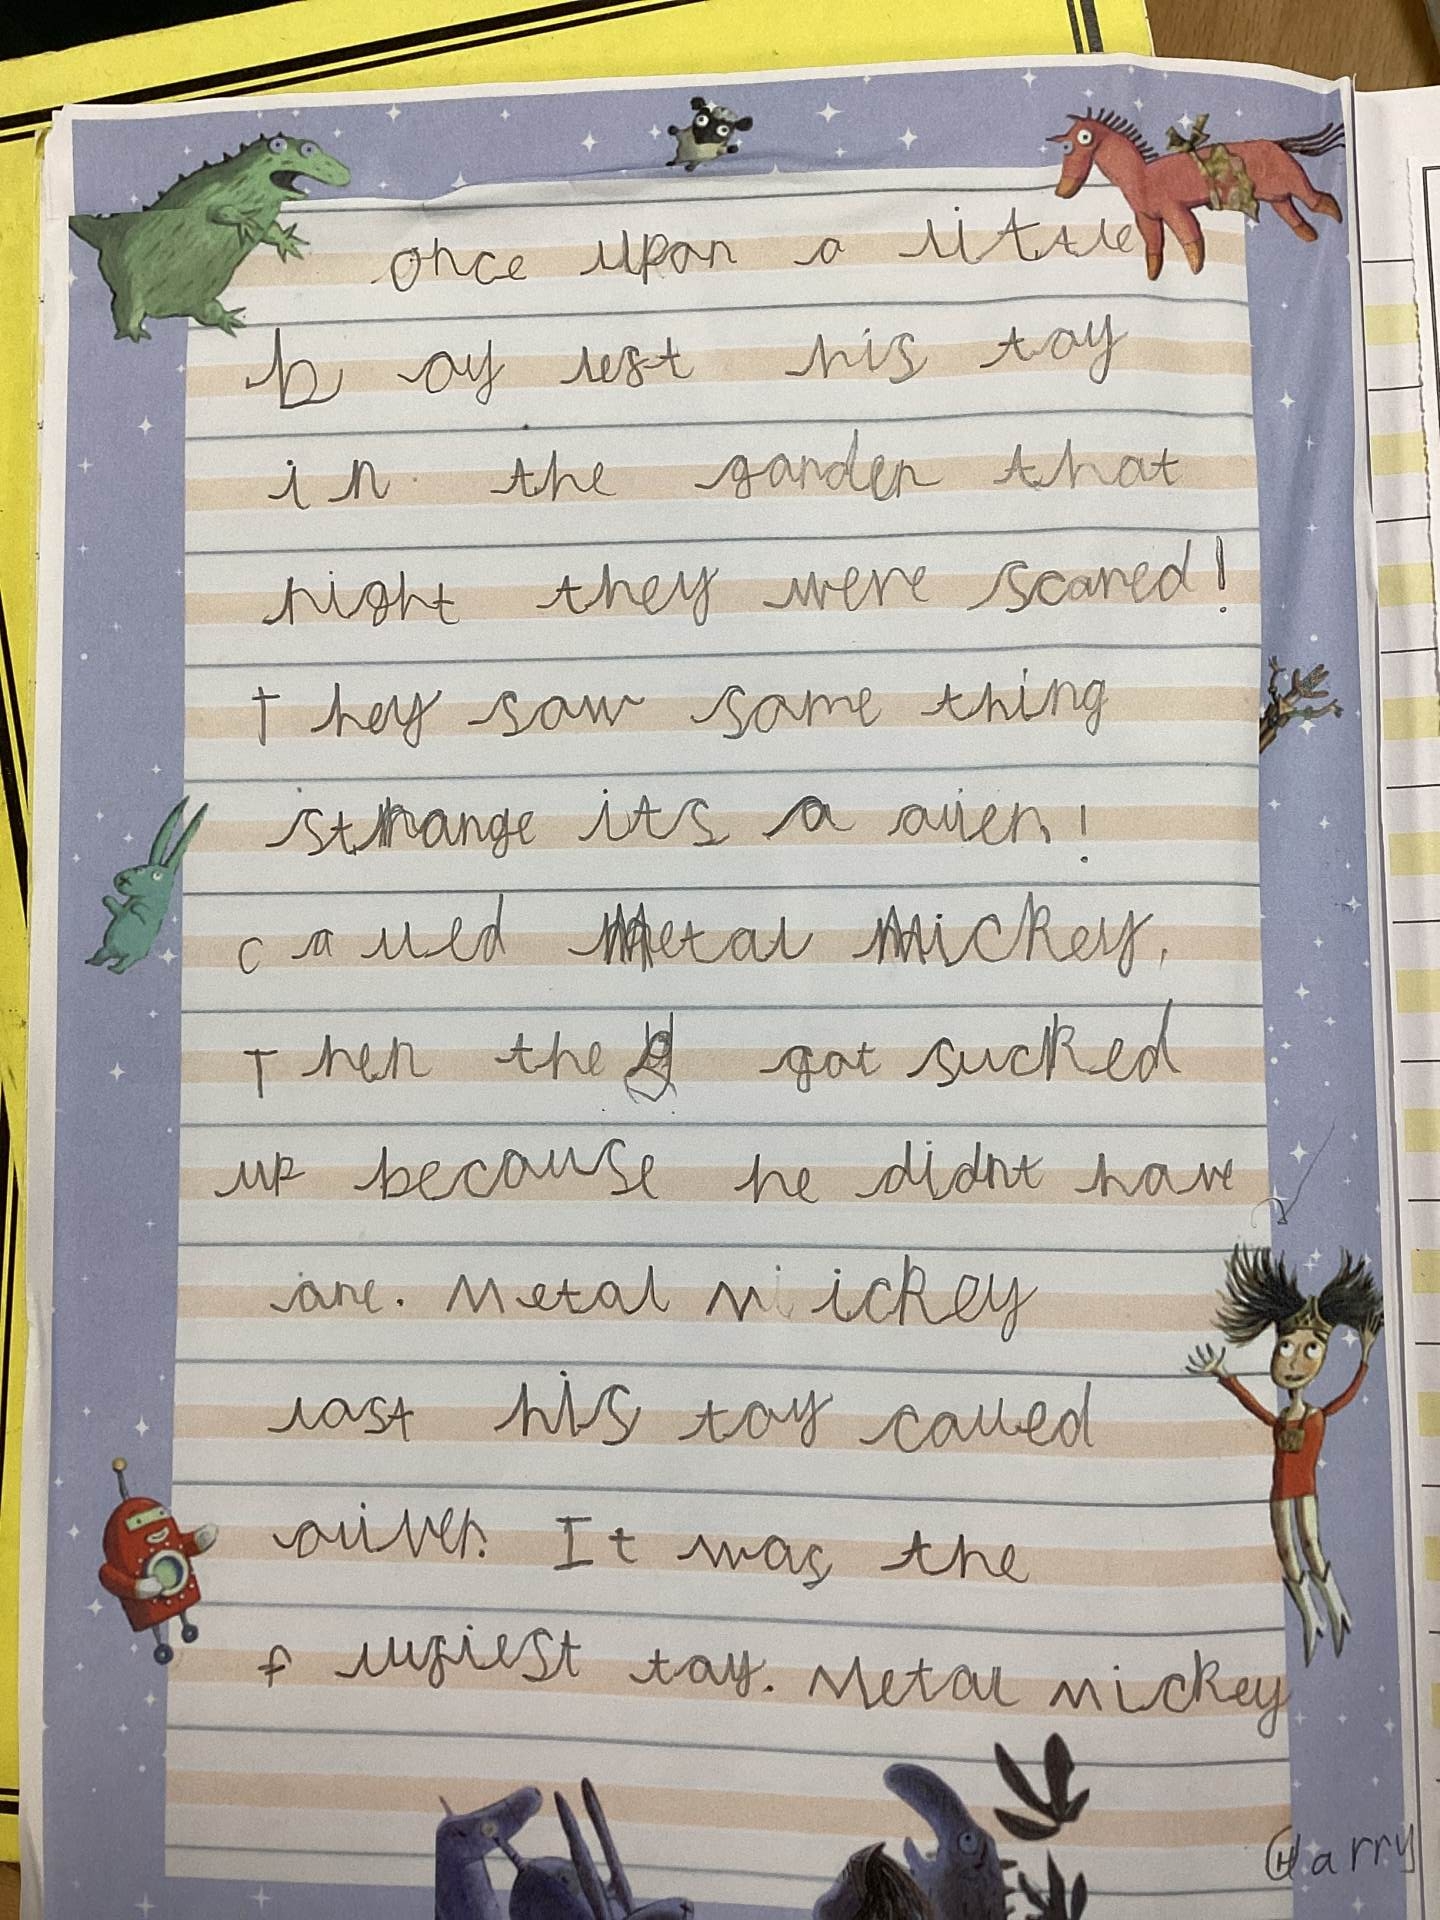 once upon a little
boy left his toy
in the garden that
night they were scared!
They saw some thing
strange its a alien!
called Metal Mickey.
Then they got sucked
up because he didnt have
are. Metal Mickey
last his toy called
oliver. It was the
flufiest toy. Metal Mickey
Harry